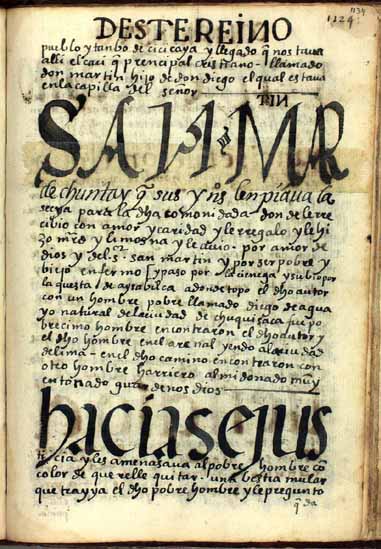 1124
DESTEREINO
pueblo y tanbo de cicicaya y llegado q̃ nos tava
alli el caci q̃ prencipal cristiano - llamado
don martin hijo de don diego el qual estava
en la capilla del señor
TIN
SAN MAR
de
la
secya para la dha comonidada donde le rre
cibio con amor y caridad y le rregalo y le hi
zo mrd y limosna y le por amor de
dios y del s. san martin y por ser pobre y
biejo enfermo y paso por la cienega y subio por
la questa de aysabilca adonde topo el dho autor
con un hombre pobre llamado diego de agua
yo natural de la ciudad de chuquisaca jue po
brecimo hombre encontraron el dho autor y
el dho hombre en el arenal yendo a la ciudad
de lima - en el dho camino encontraron con
otro hombre harriero almidonado muy
entonado de nos dios
hacia se jus
ticia y les amenasava al pobre hombre cō
color de que relle quitar una bestia mular
que trayya el dho pobre hombre y le pregunto
q̃ da